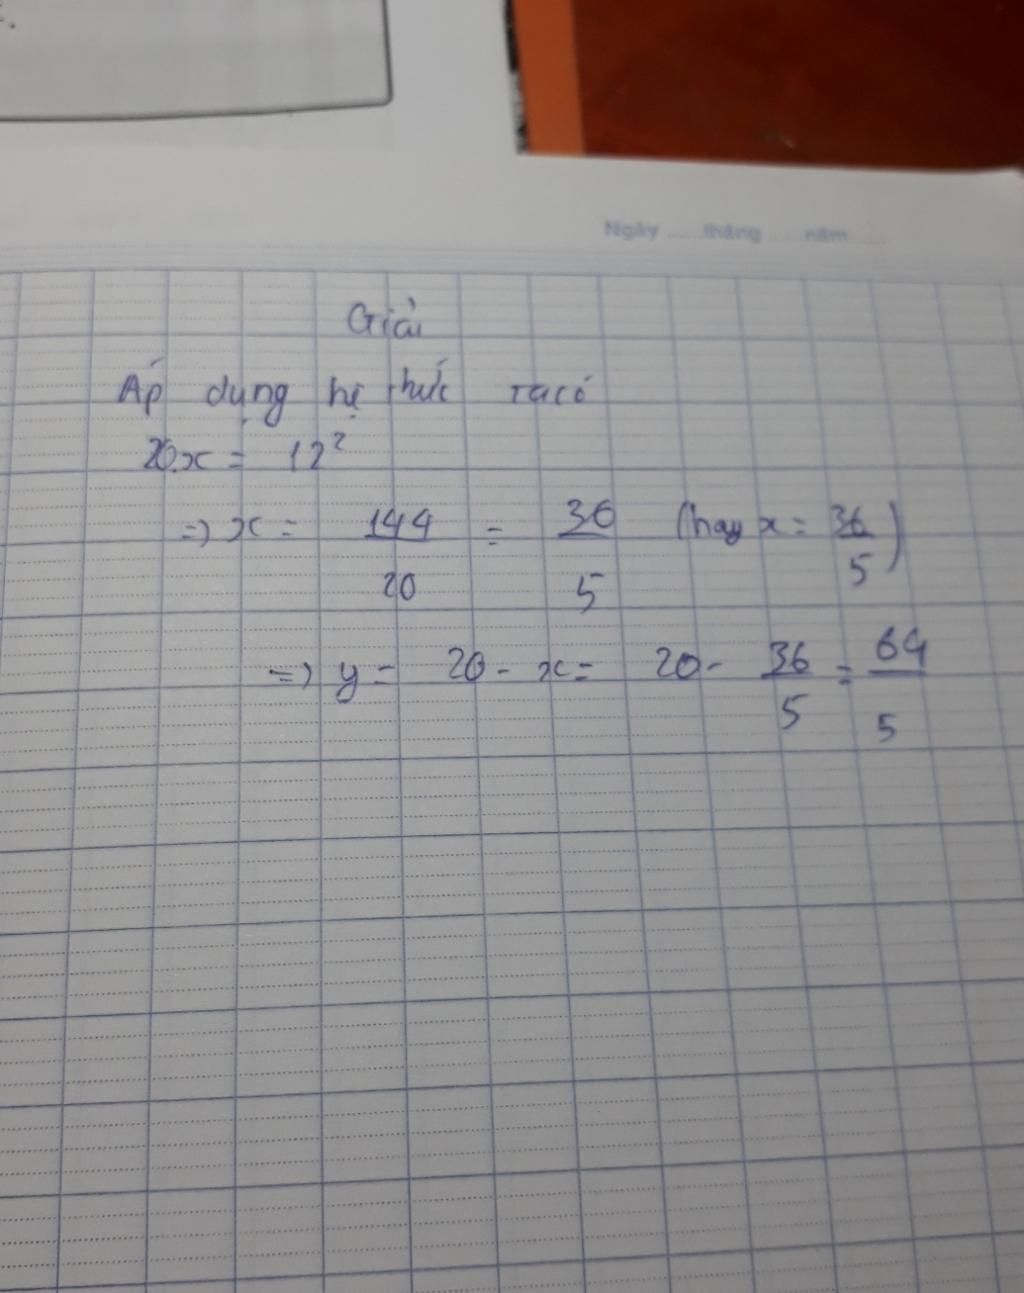 Ngày ......tháng .....năm......
Giải
Áp dụng hệ thức ta có
20.x = 12²
=> x = 144/20 = 36/5 (hay x = 36/5)
=> y = 20 - x = 20 - 36/5 = 64/5